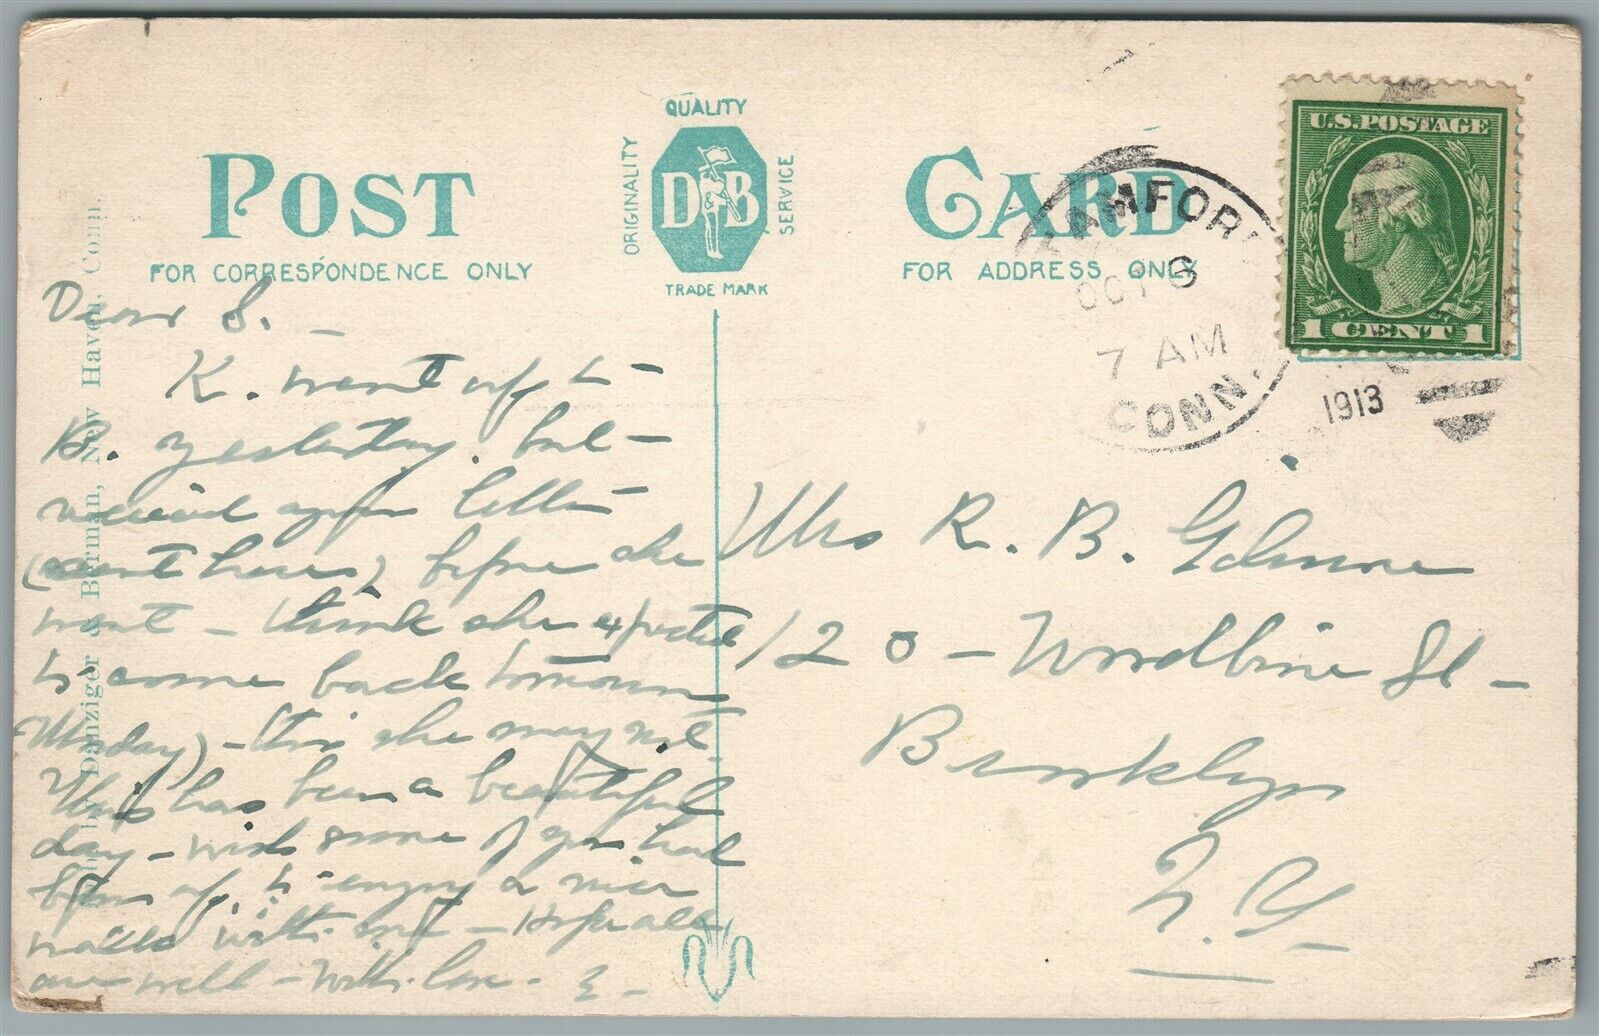 POST CARD
FOR CORRESPONDENCE ONLY
FOR ADDRESS ONLY
QUALITY
ORIGINALITY
SERVICE
D B
TRADE MARK
U.S. POSTAGE
1 CENT 1
STAMFORD
OCT 6
7 AM
CONN.
1913
Danziger & Berman, New Haven, Conn.
Dear S. —
K. went up to —
B. yesterday, but —
received your letter
(sent here) before she
went — think she expected
to come back tomorrow
Monday) — tho she may not
This has been a beautiful
day — wish some of you had
been up to enjoy a nice
walk with me — Hope all
are well — With love — E —
Mrs R. B. Gilmore
120 — Woodbine St —
Brooklyn
N. Y. —